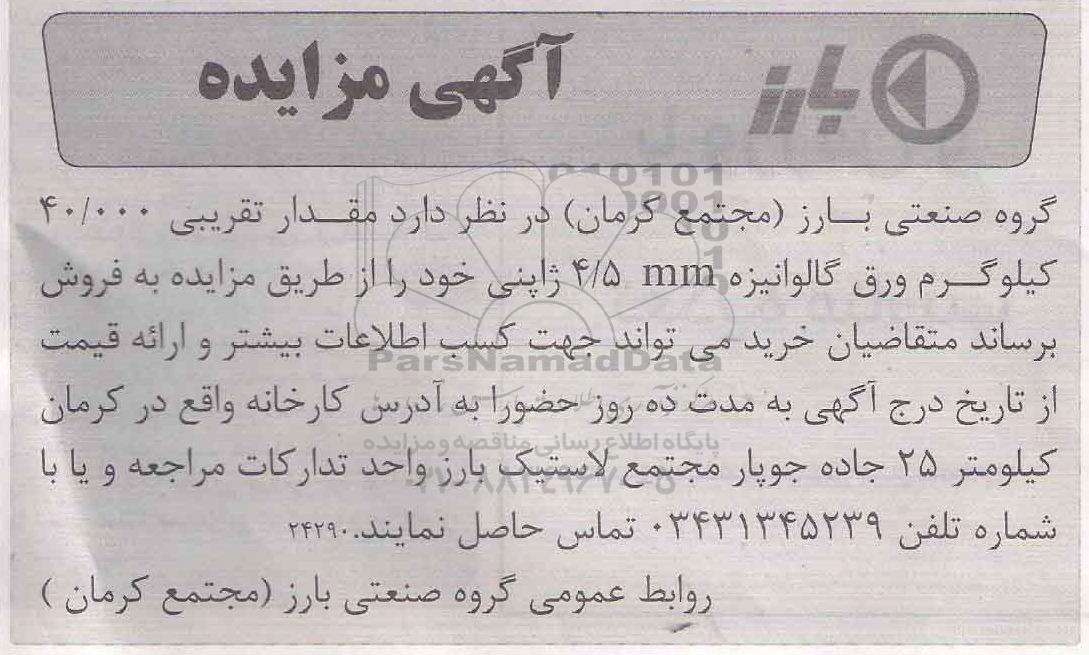 بارز
آگهی مزایده
گروه صنعتی بارز (مجتمع کرمان) در نظر دارد مقدار تقریبی ۴۰/۰۰۰
کیلوگرم ورق گالوانیزه ۴/۵ mm ژاپنی خود را از طریق مزایده به فروش
برساند متقاضیان خرید می تواند جهت کسب اطلاعات بیشتر و ارائه قیمت
از تاریخ درج آگهی به مدت ده روز حضورا به آدرس کارخانه واقع در کرمان
کیلومتر ۲۵ جاده جوپار مجتمع لاستیک بارز واحد تدارکات مراجعه و یا با
شماره تلفن ۰۳۴۳۱۳۴۵۲۳۹ تماس حاصل نمایند.۲۴۲۹۰
روابط عمومی گروه صنعتی بارز (مجتمع کرمان )
ParsNamadData
پایگاه اطلاع رسانی مناقصه و مزایده